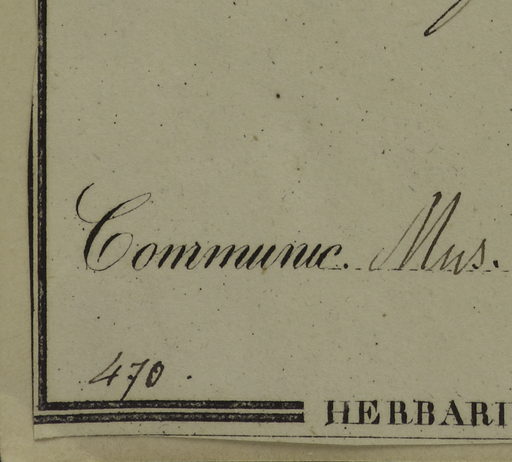 Communic. Mus.
470.
HERBARI